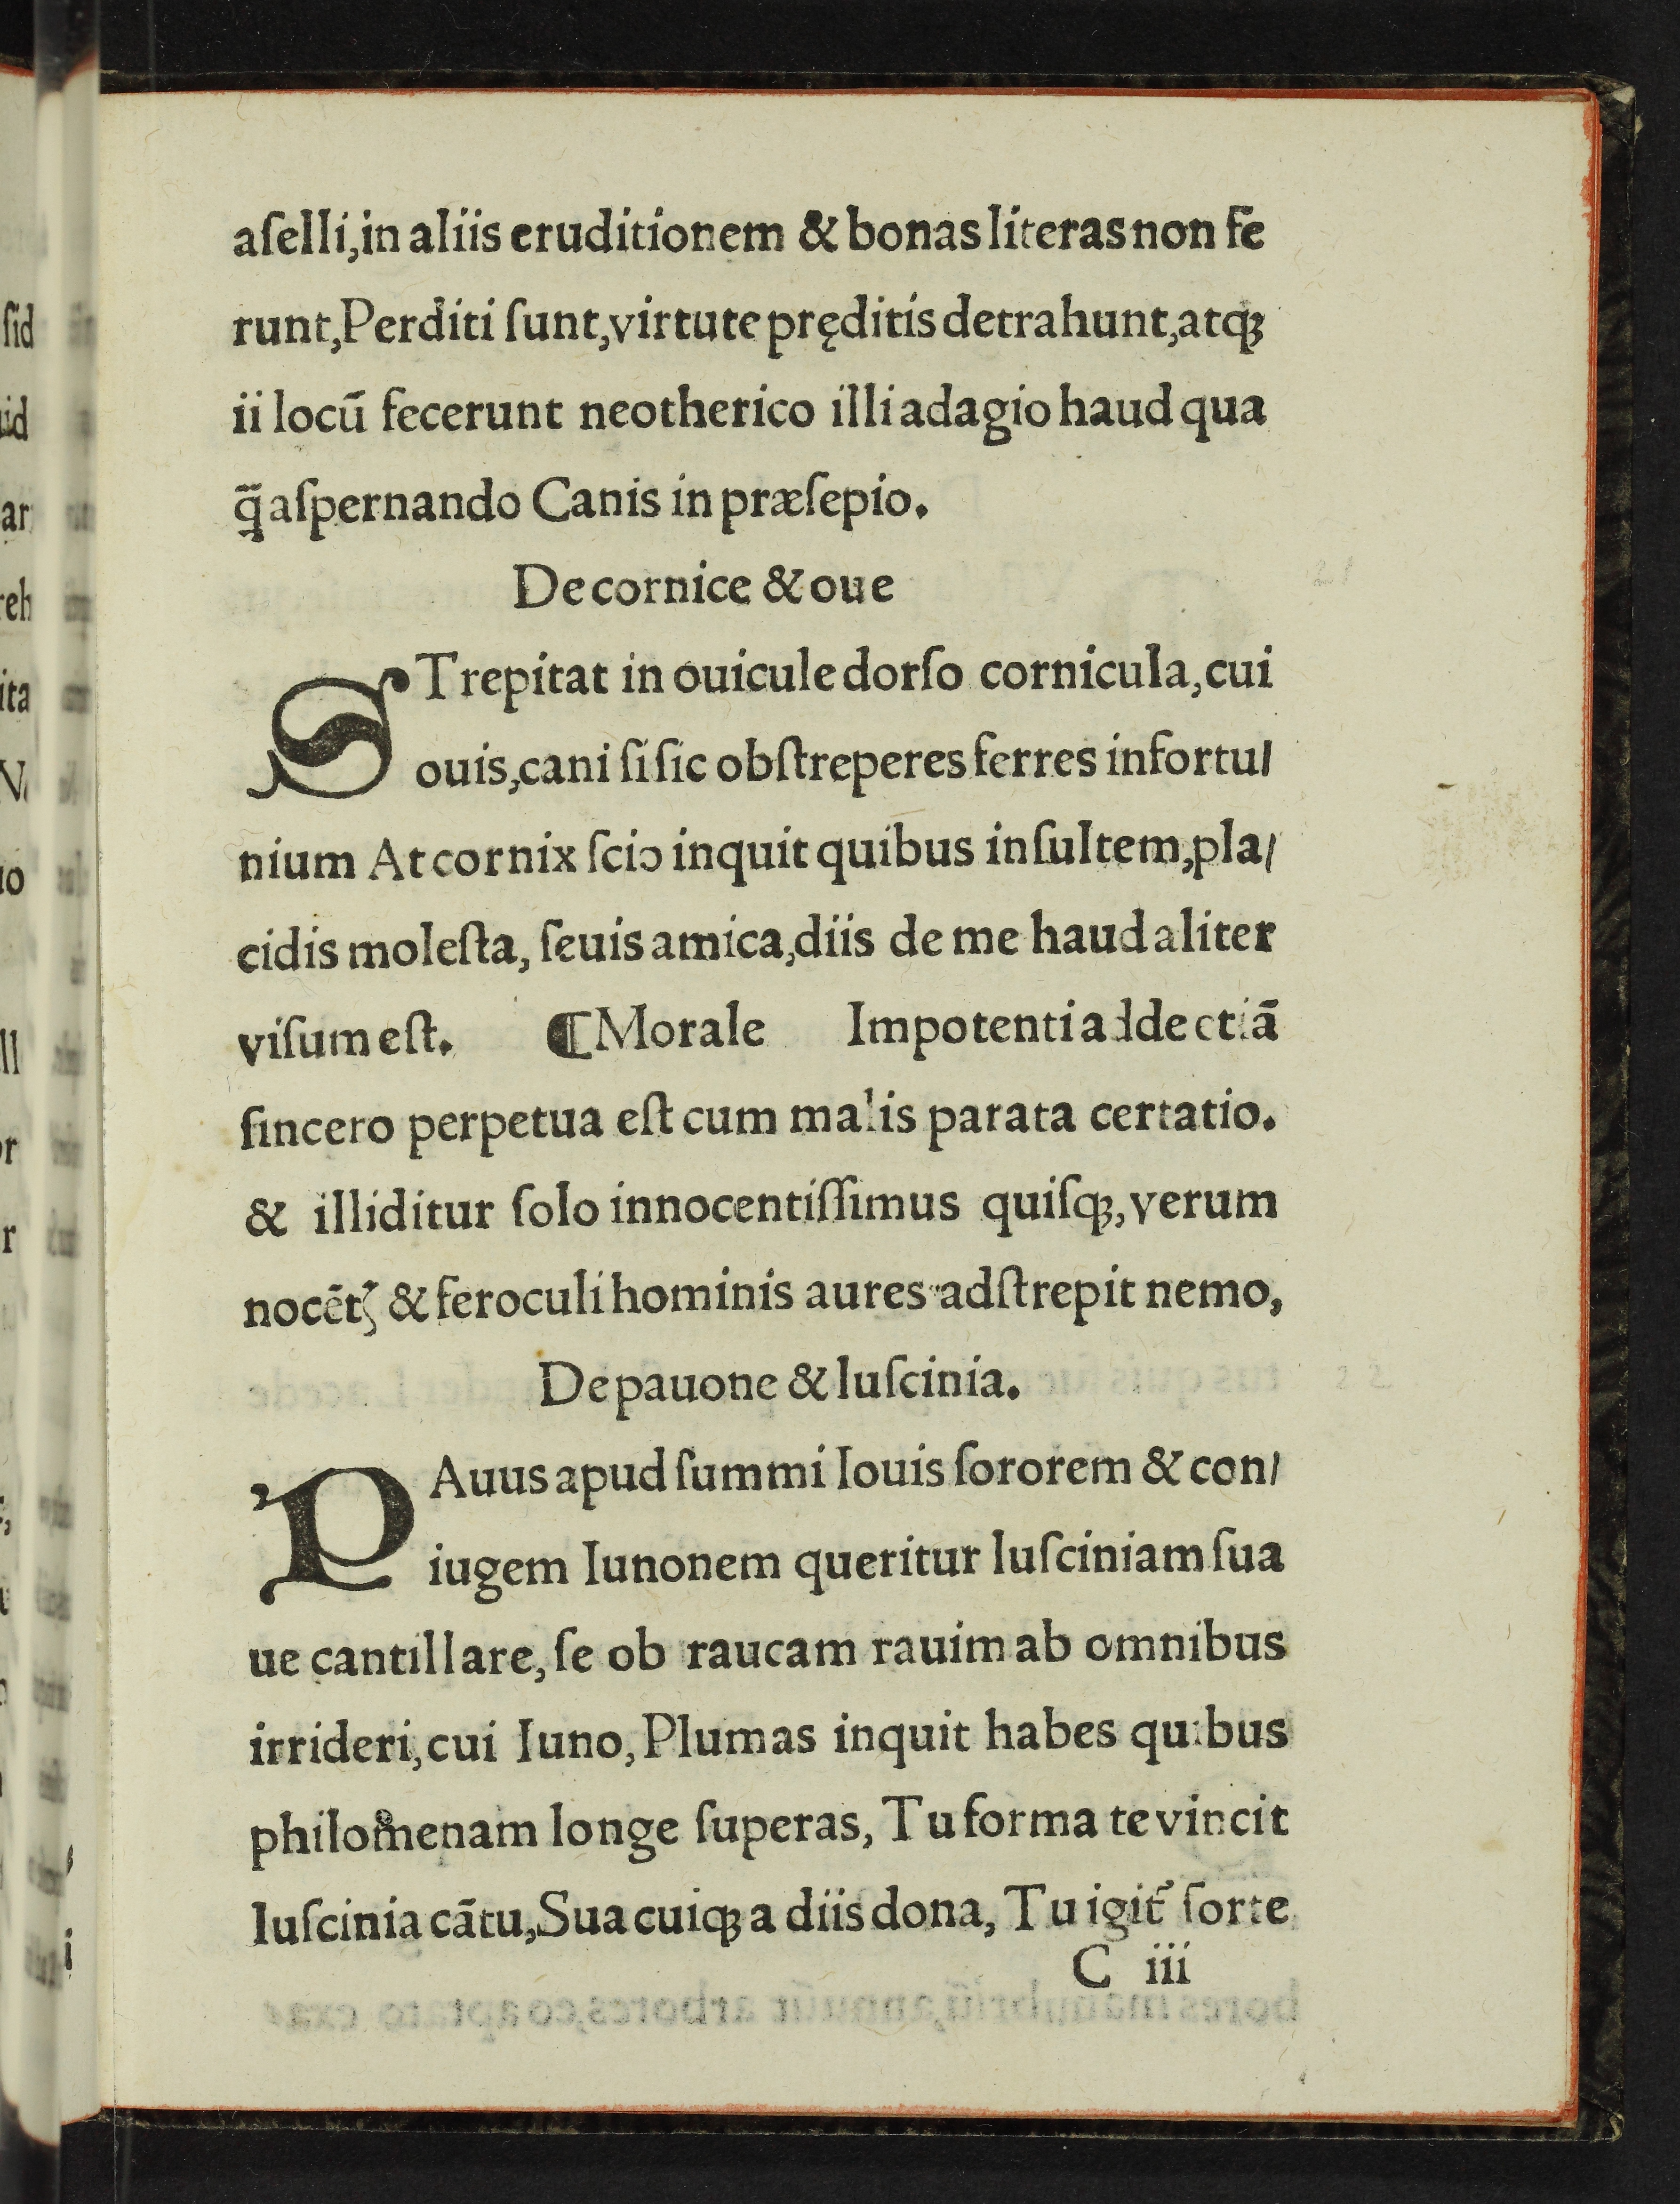 aſelli,in aliis eruditionem & bonas literas non fe
runt,Perditi ſunt,virtute pręditis detrahunt,atqꝫ
ii locū fecerunt neotherico illi adagio haud qua
q̄ aſpernando Canis in præſepio.
De cornice & oue
STrepitat in ouicule dorſo cornicula,cui
ouis,cani ſi ſic obſtreperes ferres infortu/
nium At cornix ſcio inquit quibus inſultem,pla/
cidis moleſta, ſeuis amica,diis de me haud aliter
viſum eſt. ¶Morale Impotenti adde etiā
ſincero perpetua eſt cum malis parata certatio.
& illiditur ſolo innocentiſſimus quiſqꝫ,verum
& feroculi hominis aures adſtrepit nemo,
De pauone & luſcinia.
PAuus apud ſummi Iouis ſororem & con/
iugem Iunonem queritur luſciniam ſua
ue cantillare, ſe ob raucam rauim ab omnibus
irrideri,cui Iuno,Plumas inquit habes quibus
philomenam longe ſuperas, Tu forma te vincit
luſcinia cātu,Sua cuiqꝫ a diis dona, Tu igit᷑ ſorte
C iii